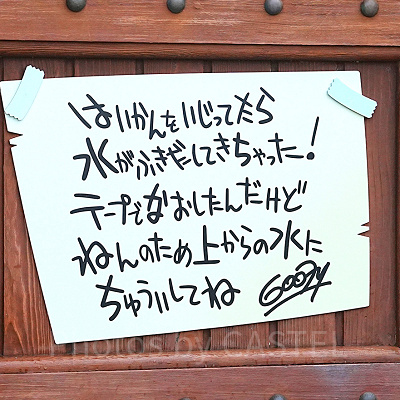 はいかんをいじってたら
水がふきだしてきちゃった!
テープでなおしたんだけど
ねんのため上からの水に
ちゅういしてね
GOOFY
Photos by CASTEL